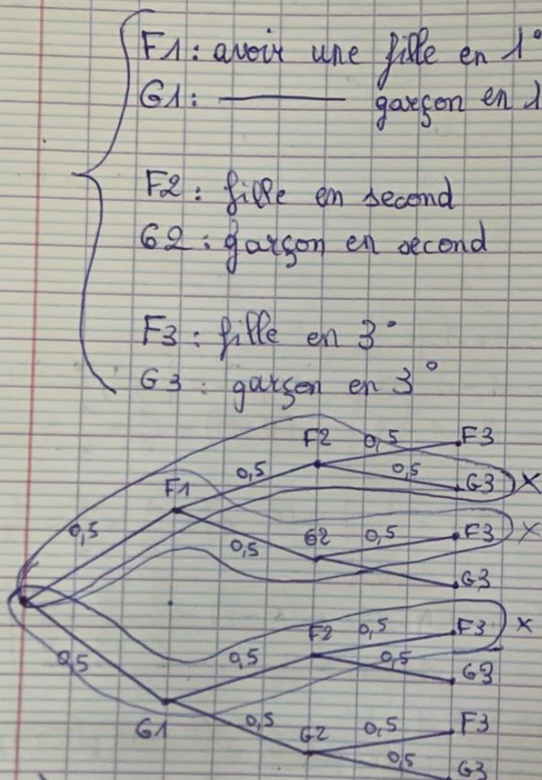 F1: avoir une fille en 1°
G1: ——— garçon en 1
F2: fille en second
G2: garçon en second
F3: fille en 3°
G3: garçon en 3°
F2 0,5 F3
0,5 0,5 G3 X
F1
0,5 0,5 G2 0,5 F3 X
G3
F2 0,5 F3 X
0,5 0,5 0,5 G3
G1 0,5 G2 0,5 F3
0,5 G3